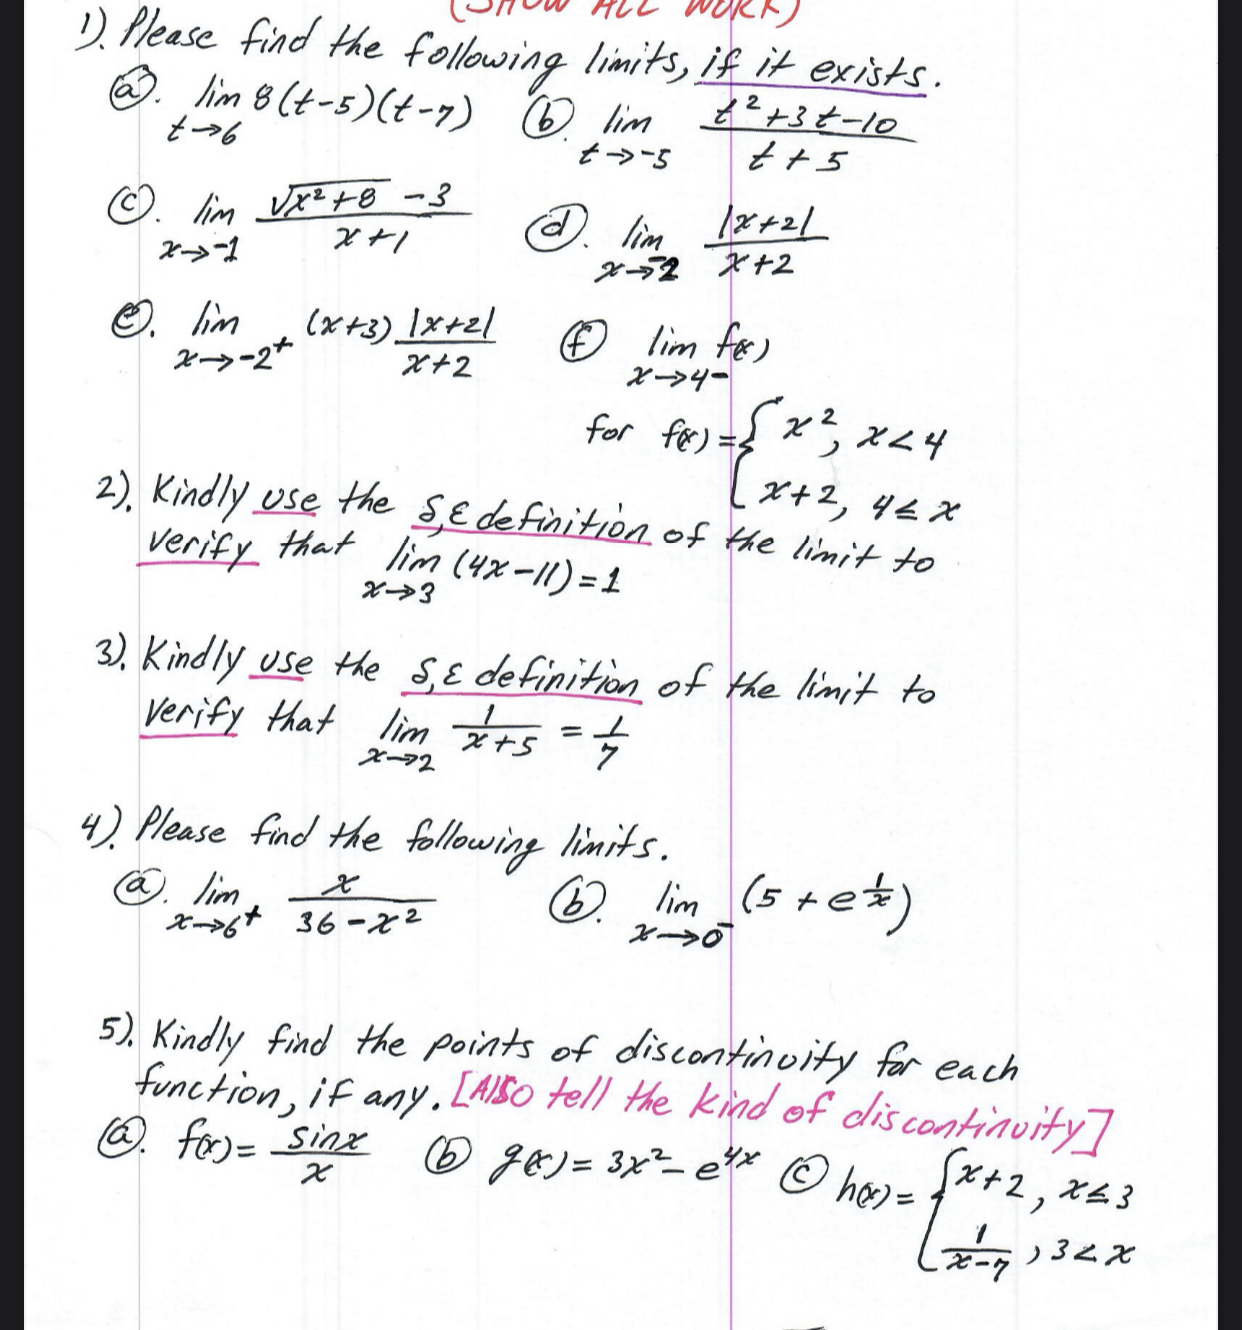 (SHOW ALL WORK)
1). Please find the following limits, if it exists.
(a). lim t→6 8(t-5)(t-7) (b) lim t→-5 (t²+3t-10)/(t+5)
(c). lim x→-1 (√(x²+8) -3)/(x+1) (d). lim x→-2 |x+2|/(x+2)
(e). lim x→-2⁺ (x+3) |x+2|/(x+2) (f) lim x→4⁻ f(x)
for f(x) = { x², x<4
x+2, 4≤x
2). Kindly use the δ,ε definition of the limit to
verify that lim x→3 (4x-11)=1
3). Kindly use the δ,ε definition of the limit to
verify that lim x→2 1/(x+5) = 1/7
4). Please find the following limits.
(a). lim x→6⁺ x/(36-x²) (b). lim x→0⁻ (5+e^(1/x))
5). Kindly find the points of discontinuity for each
function, if any. [Also tell the kind of discontinuity]
(a). f(x)= sinx/x (b) g(x)= 3x²-e^(4x) (c) h(x)= { x+2, x≤3
1/(x-7), 3<x